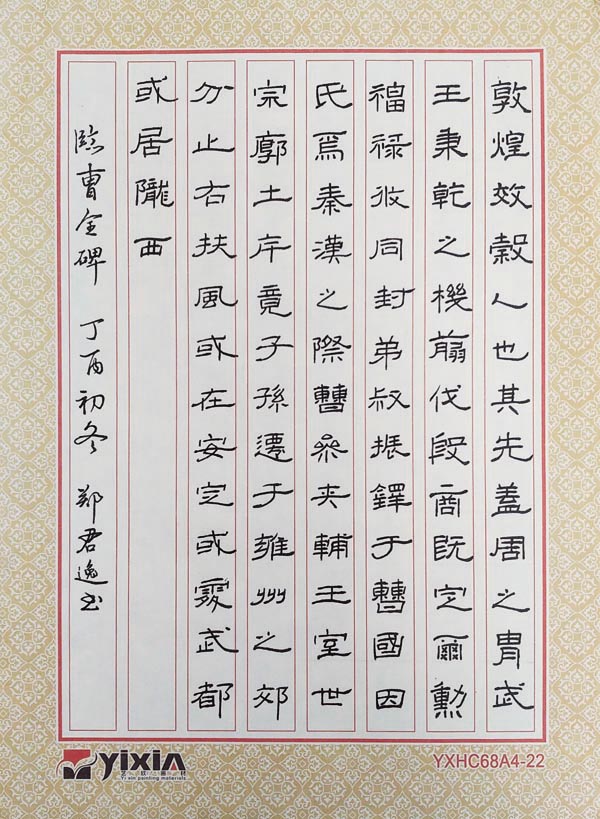 敦煌效穀人也其先蓋周之胄武
王秉乾之機翦伐殷商既定爾勲
福祿攸同封弟叔振鐸于曹國因
氏焉秦漢之際曹參夾輔王室世
宗廓土斥竟子孫遷于雍州之郊
分止右扶風或在安定或處武都
或居隴西
臨曹全碑 丁酉初冬 郑君逸书
yixin
艺欣画材
Yi xin painting materials
YXHC68A4-22